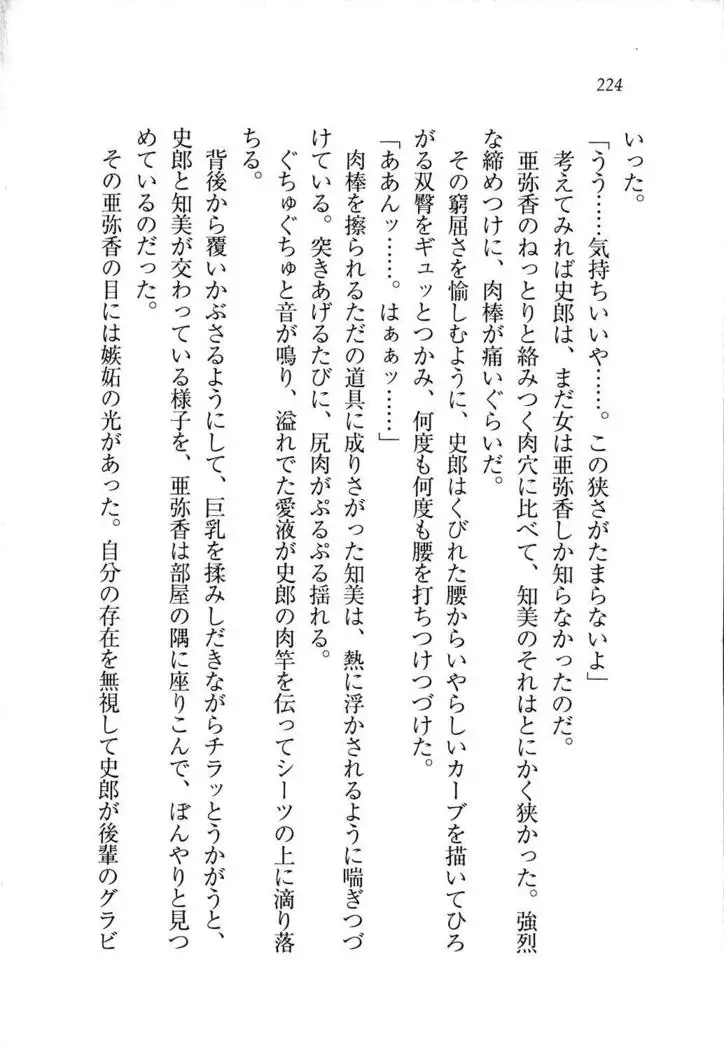 224
いった。
「うう……気持ちいいや……。この狭さがたまらないよ」
考えてみれば史郎は、まだ女は亜弥香しか知らなかったのだ。
亜弥香のねっとりと絡みつく肉穴に比べて、知美のそれはとにかく狭かった。強烈
な締めつけに、肉棒が痛いぐらいだ。
その窮屈さを愉しむように、史郎はくびれた腰からいやらしいカーブを描いてひろ
がる双臀をギュッとつかみ、何度も何度も腰を打ちつけつづけた。
「ああんッ……。はぁぁッ……」
肉棒を擦られるただの道具に成りさがった知美は、熱に浮かされるように喘ぎつづ
けている。突きあげるたびに、尻肉がぷるぷる揺れる。
ぐちゅぐちゅと音が鳴り、溢れでた愛液が史郎の肉竿を伝ってシーツの上に滴り落
ちる。
背後から覆いかぶさるようにして、巨乳を揉みしだきながらチラッとうかがうと、
史郎と知美が交わっている様子を、亜弥香は部屋の隅に座りこんで、ぼんやりと見つ
めているのだった。
その亜弥香の目には嫉妬の光があった。自分の存在を無視して史郎が後輩のグラビ